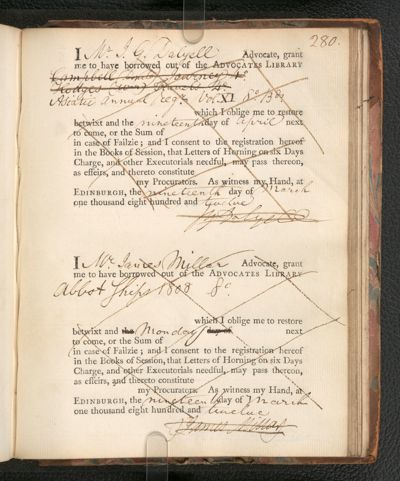 280.
I Mr. J. G. Dalyell Advocate, grant
me to have borrowed out of the ADVOCATES LIBRARY
Campbell Journey 4o
Hodges Travels 4o
Asiatic Annual Regr. Vol. XI 8o
which I oblige me to restore
betwixt and the nineteenth day of April next
to come, or the Sum of
in case of Failzie; and I consent to the registration hereof
in the Books of Session, that Letters of Horning on six Days
Charge, and other Executorials needful, may pass thereon,
as effeirs, and thereto constitute
my Procurators. As witness my Hand, at
EDINBURGH, the nineteenth day of March
one thousand eight hundred and twelve
I Mr. James Millar Advocate, grant
me to have borrowed out of the ADVOCATES LIBRARY
Abbot Ships 1808 8o.
which I oblige me to restore
betwixt and the Monday day of next
to come, or the Sum of
in case of Failzie; and I consent to the registration hereof
in the Books of Session, that Letters of Horning on six Days
Charge, and other Executorials needful, may pass thereon,
as effeirs, and thereto constitute
my Procurators. As witness my Hand, at
EDINBURGH, the nineteenth day of March
one thousand eight hundred and twelve
James Millar